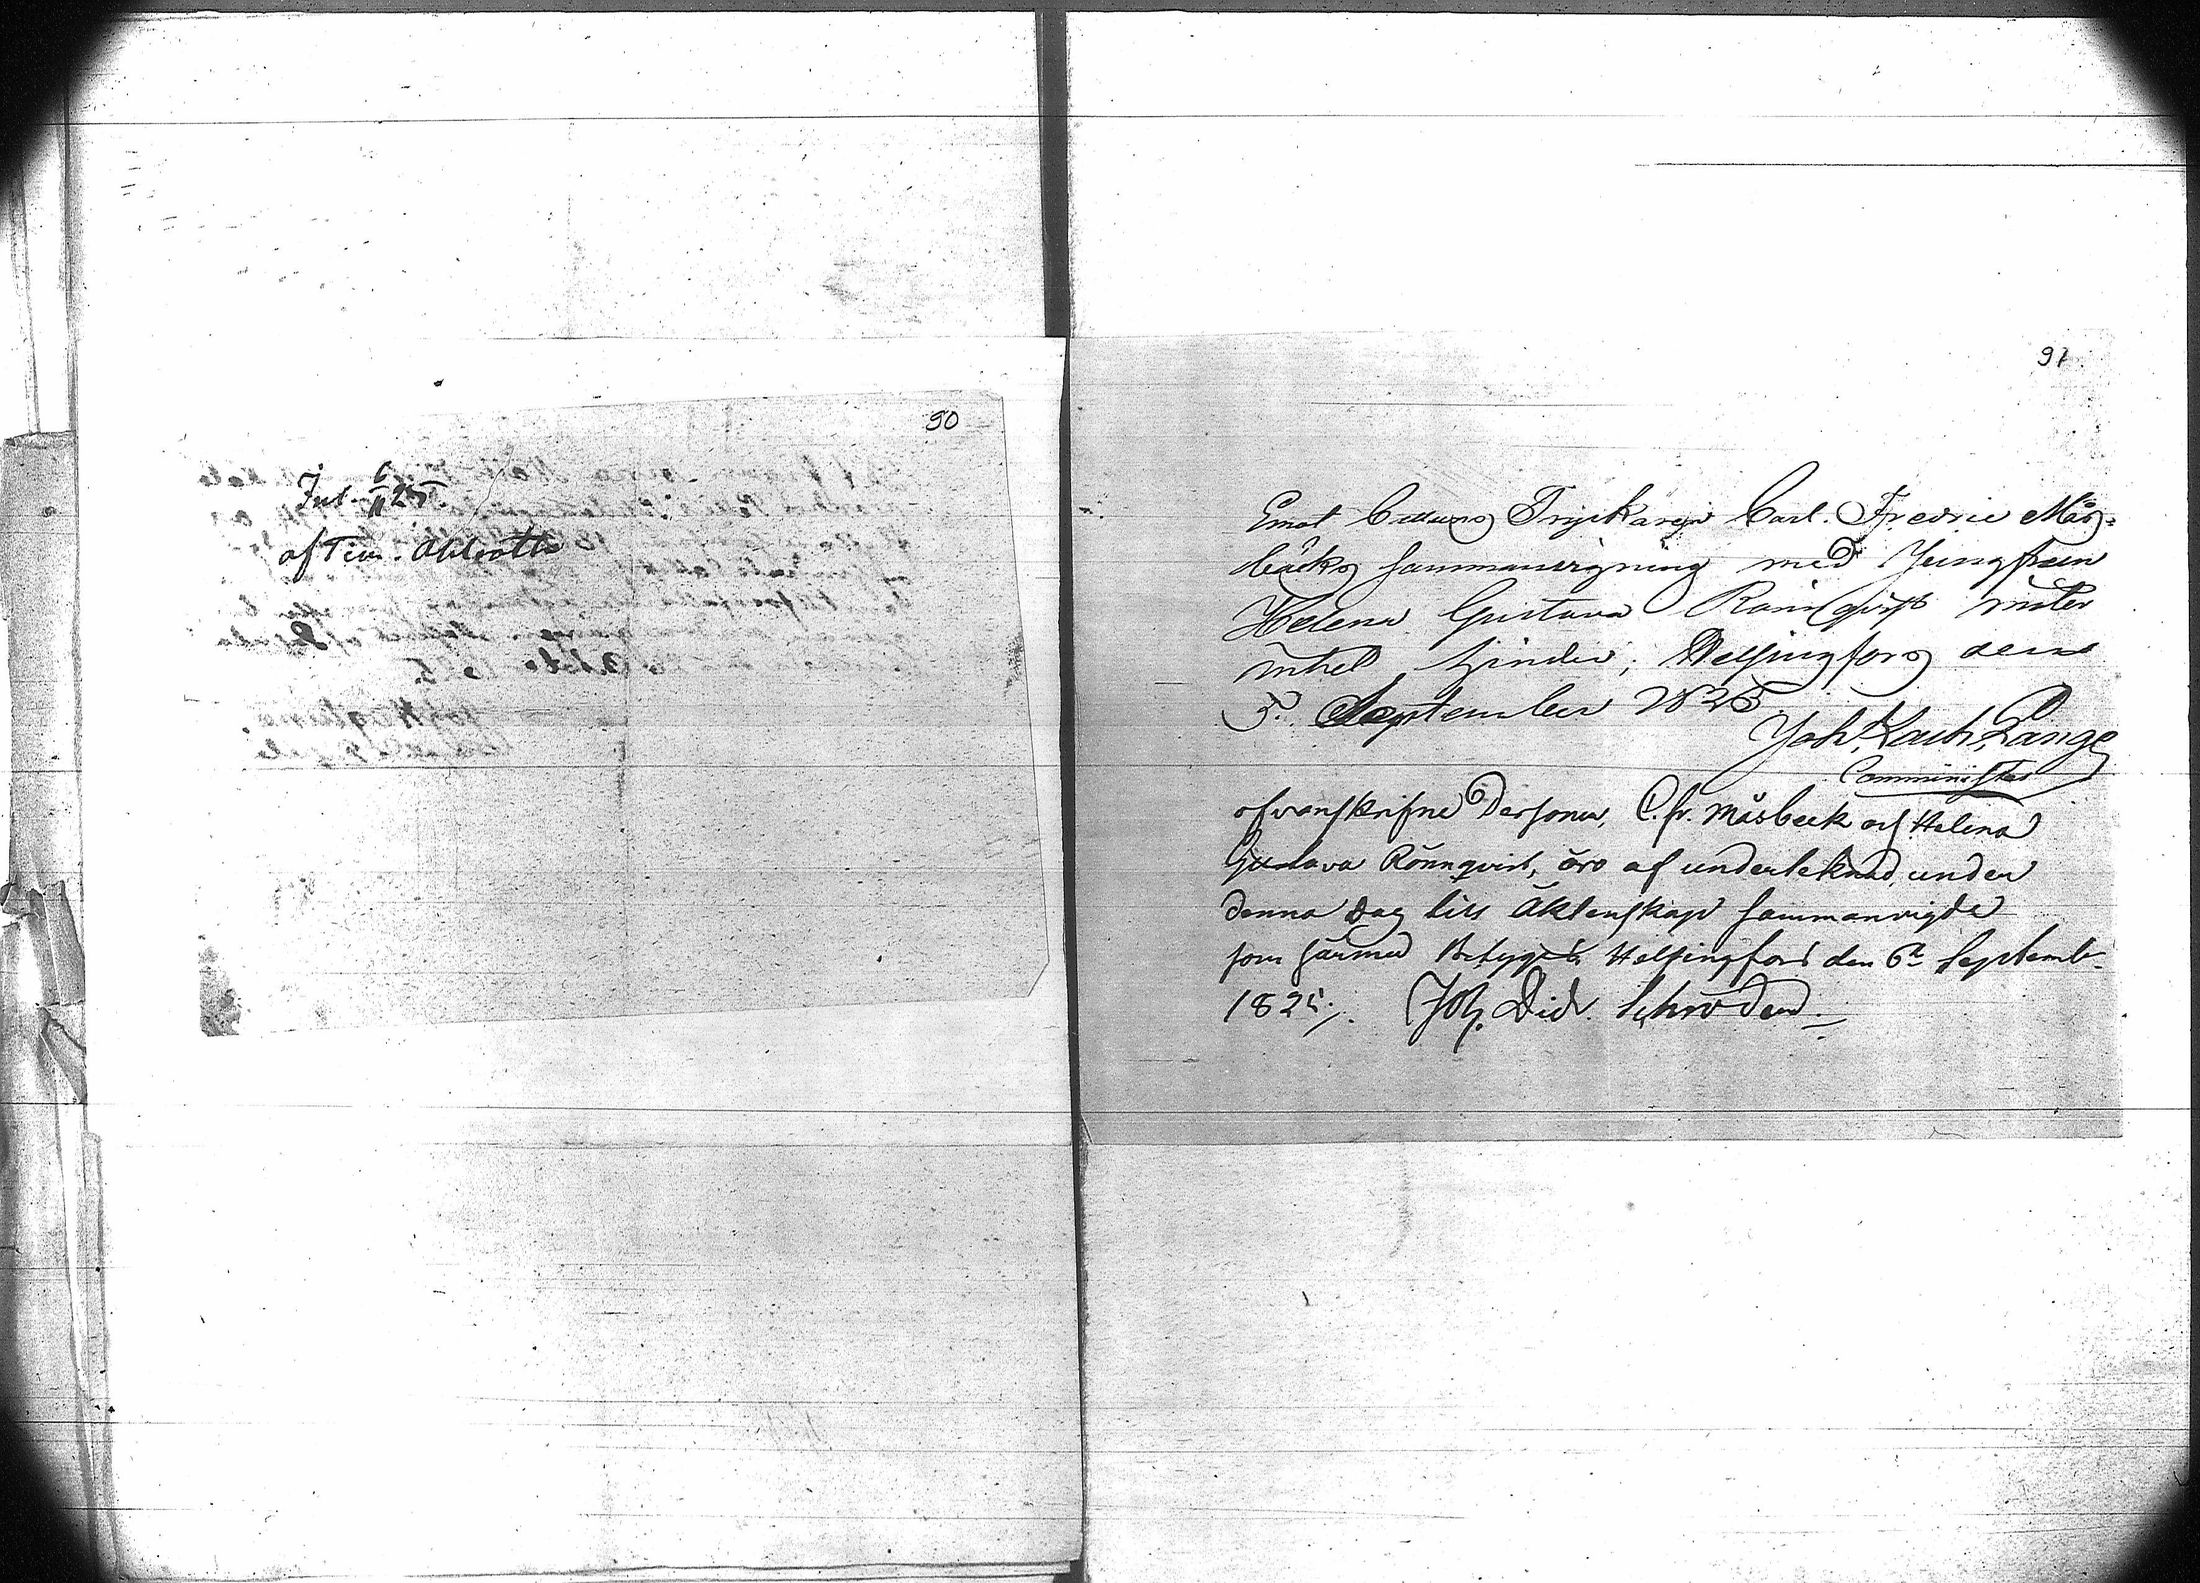 90
Jul. 6/11 25
af Tim. Ahlroth
91
Emot Cattuns Tryckaren Carl Fredric Mås-
bäcks sammanvigning med Jungfrun
Helena Gustava Rönnqvist möter
intet hinder; Helsingfors den
5. September 1825.
Joh. Zach. Lange
Comminister
ofvanskrifne Personer, C. fr. Måsbeck och Helena
Gustava Rönnqvist, äro af underteknad, under
denna Dag till Äktenskap sammanvigde
som härmed Betygas, Helsingfors den 6te Septemb
1825. Joh. Did. Schröder